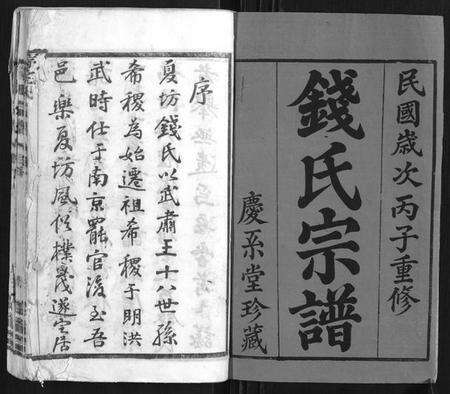 民國歲次丙子重修
錢氏宗譜
慶系堂珍藏
序
夏坊錢氏以武肅王十八世孫
希稷為始遷祖希稷于明洪
武時仕于南京罷官後至吾
邑樂夏坊風俗樸幾遂家居